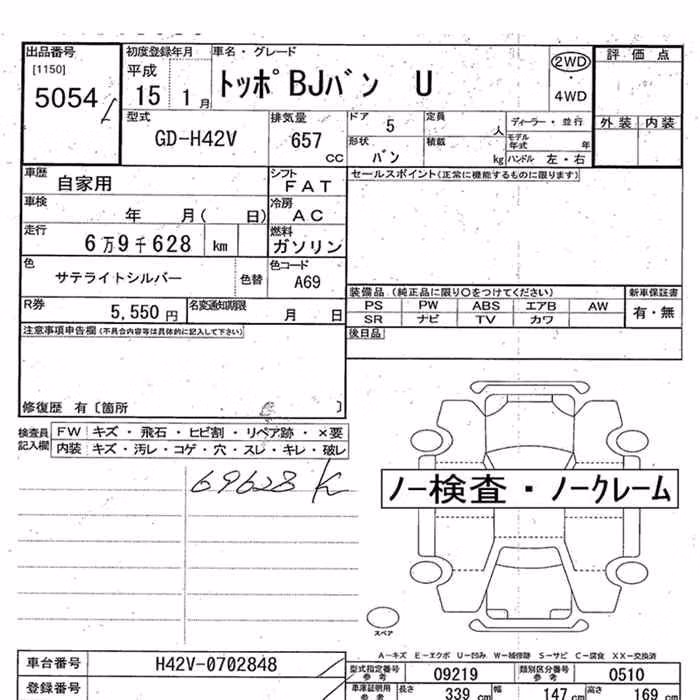 出品番号 初度登録年月 車名・グレード 評価点
[1150] 平成 トッポBJバン U 2WD
5054 15 1月 ・4WD
型式 排気量 ドア 5 定員 人 ディーラー・並行 外装 内装
GD-H42V 657 cc 形状 バン 積載 kg モデル年式 年
ハンドル 左・右
車歴 自家用 シフト FAT セールスポイント(正常に機能するものに限ります)
車検 年 月( 日) 冷房 AC
走行 6万9千628 km 燃料 ガソリン
色 サテライトシルバー 色替 色コード A69
装備品(純正品に限り○をつけてください) 新車保証書
R券 5,550円 名変通知期限 月 日 PS PW ABS エアB AW 有・無
SR ナビ TV カワ
注意事項申告欄(不具合内容等は具体的に記入して下さい) 後日品
修復歴 有〔箇所 〕
検査員記入欄 FW キズ・飛石・ヒビ割・リペア跡・×要
内装 キズ・汚レ・コゲ・穴・スレ・キレ・破レ
69628 K
ノー検査・ノークレーム
スペア
A-キズ E-エクボ U-凹み W-補修跡 S-サビ C-腐食 XX-交換済
車台番号 H42V-0702848 型式指定番号 参考 09219 類別区分番号 参考 0510
登録番号 車庫証明用 参考 長さ 339 cm 幅 147 cm 高さ 169 cm